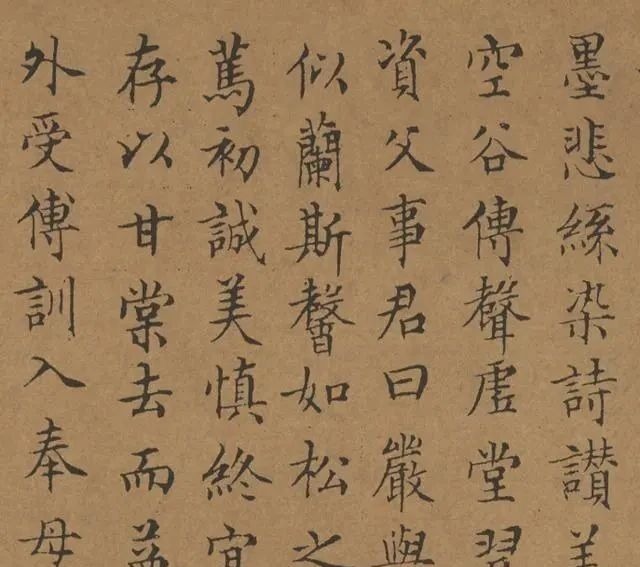 墨悲絲染詩讃羔
空谷傳聲虛堂習
資父事君曰嚴與
似蘭斯馨如松之
篤初誠美慎終宜
存以甘棠去而益
外受傅訓入奉母